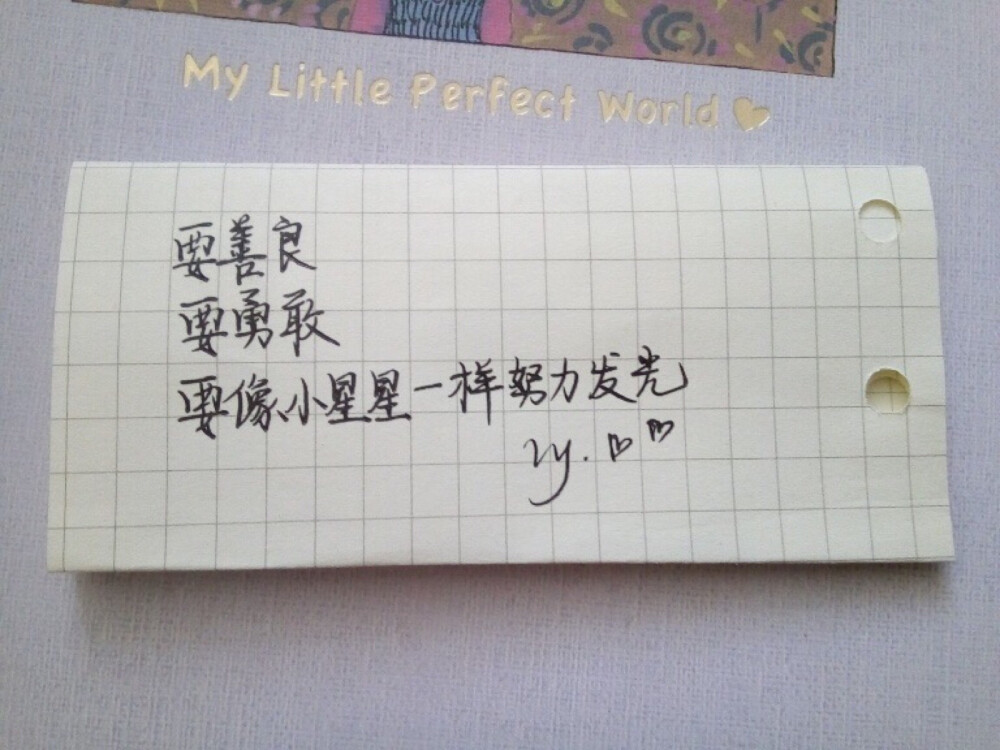 My Little Perfect World
要善良
要勇敢
要像小星星一样努力发光
ly.